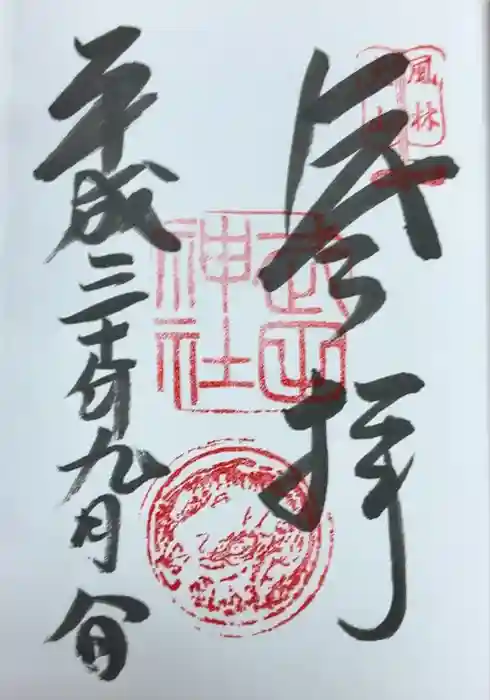 風林
火山
参拝
武田
神社
平成三十年九月 日